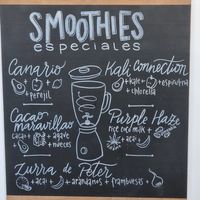 SMOOTHIES
especiales
Canario
+ perejil
Kali-Connection
+ kale + espirulina
+ chlorella
Cacao
maravillao
cacao + agave
+ nueces
Purple Haze
rice milk +
+ açaí
Zurra de Peter
+ açaí + arándanos + frambuesas +